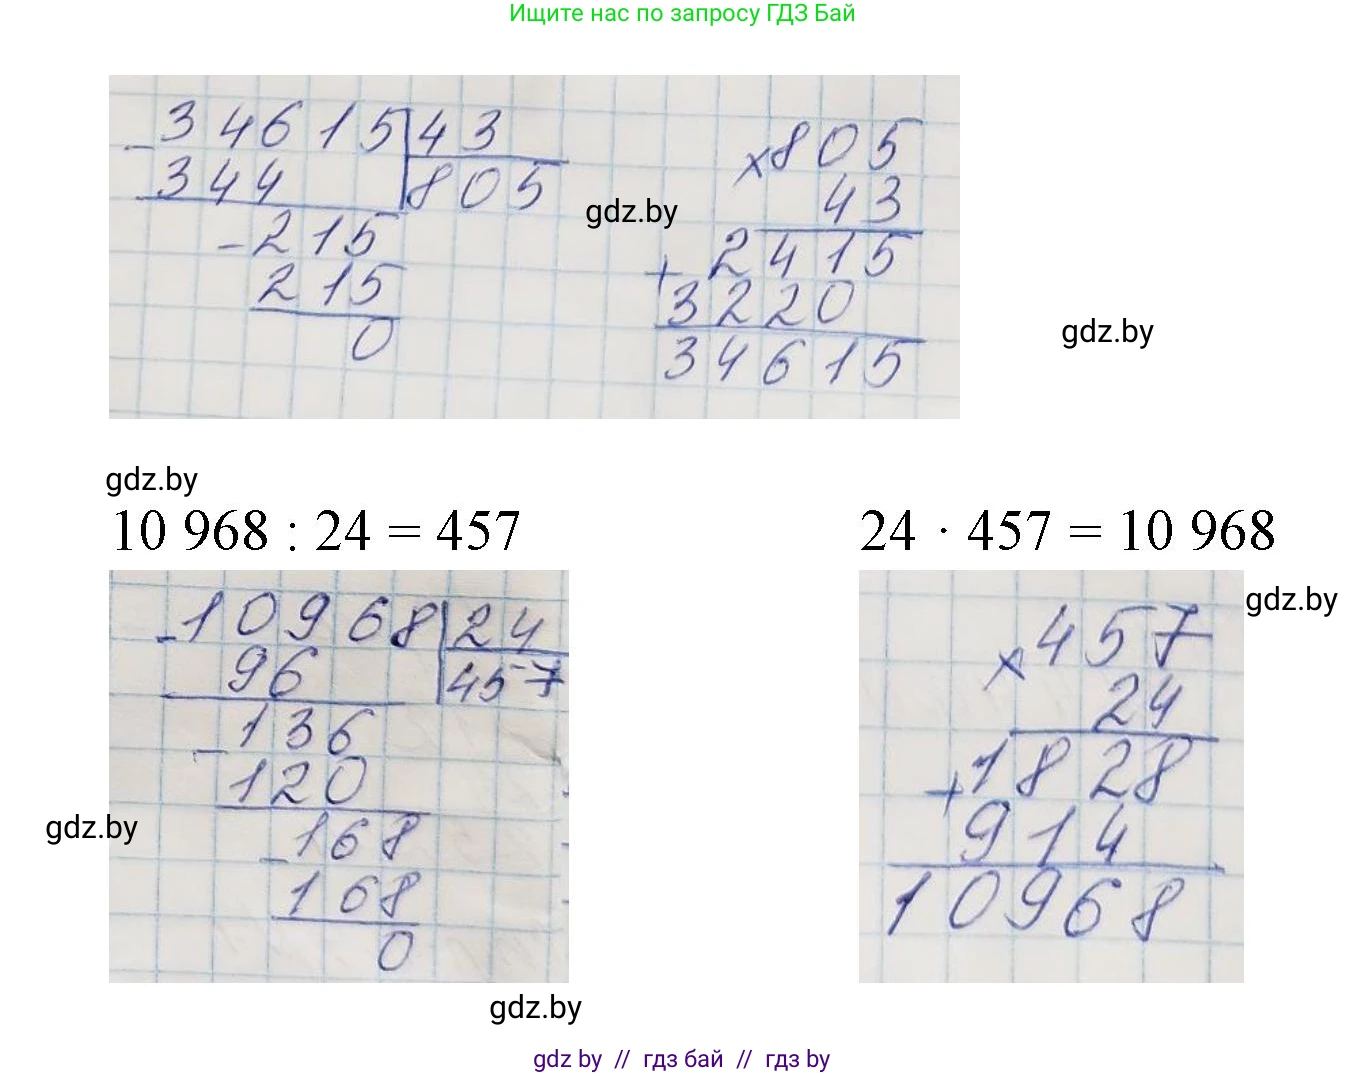 Ищите нас по запросу ГДЗ Бай
- 34615 | 43
344 | 805
- 215
215
0
gdz.by
× 805
43
+ 2415
3220
34615
gdz.by
gdz.by
10 968 : 24 = 457
24 · 457 = 10 968
- 10968 | 24
96 | 457
- 136
120
- 168
168
0
gdz.by
× 457
24
+ 1828
914
10968
gdz.by
gdz.by
gdz by // гдз бай // гдз by